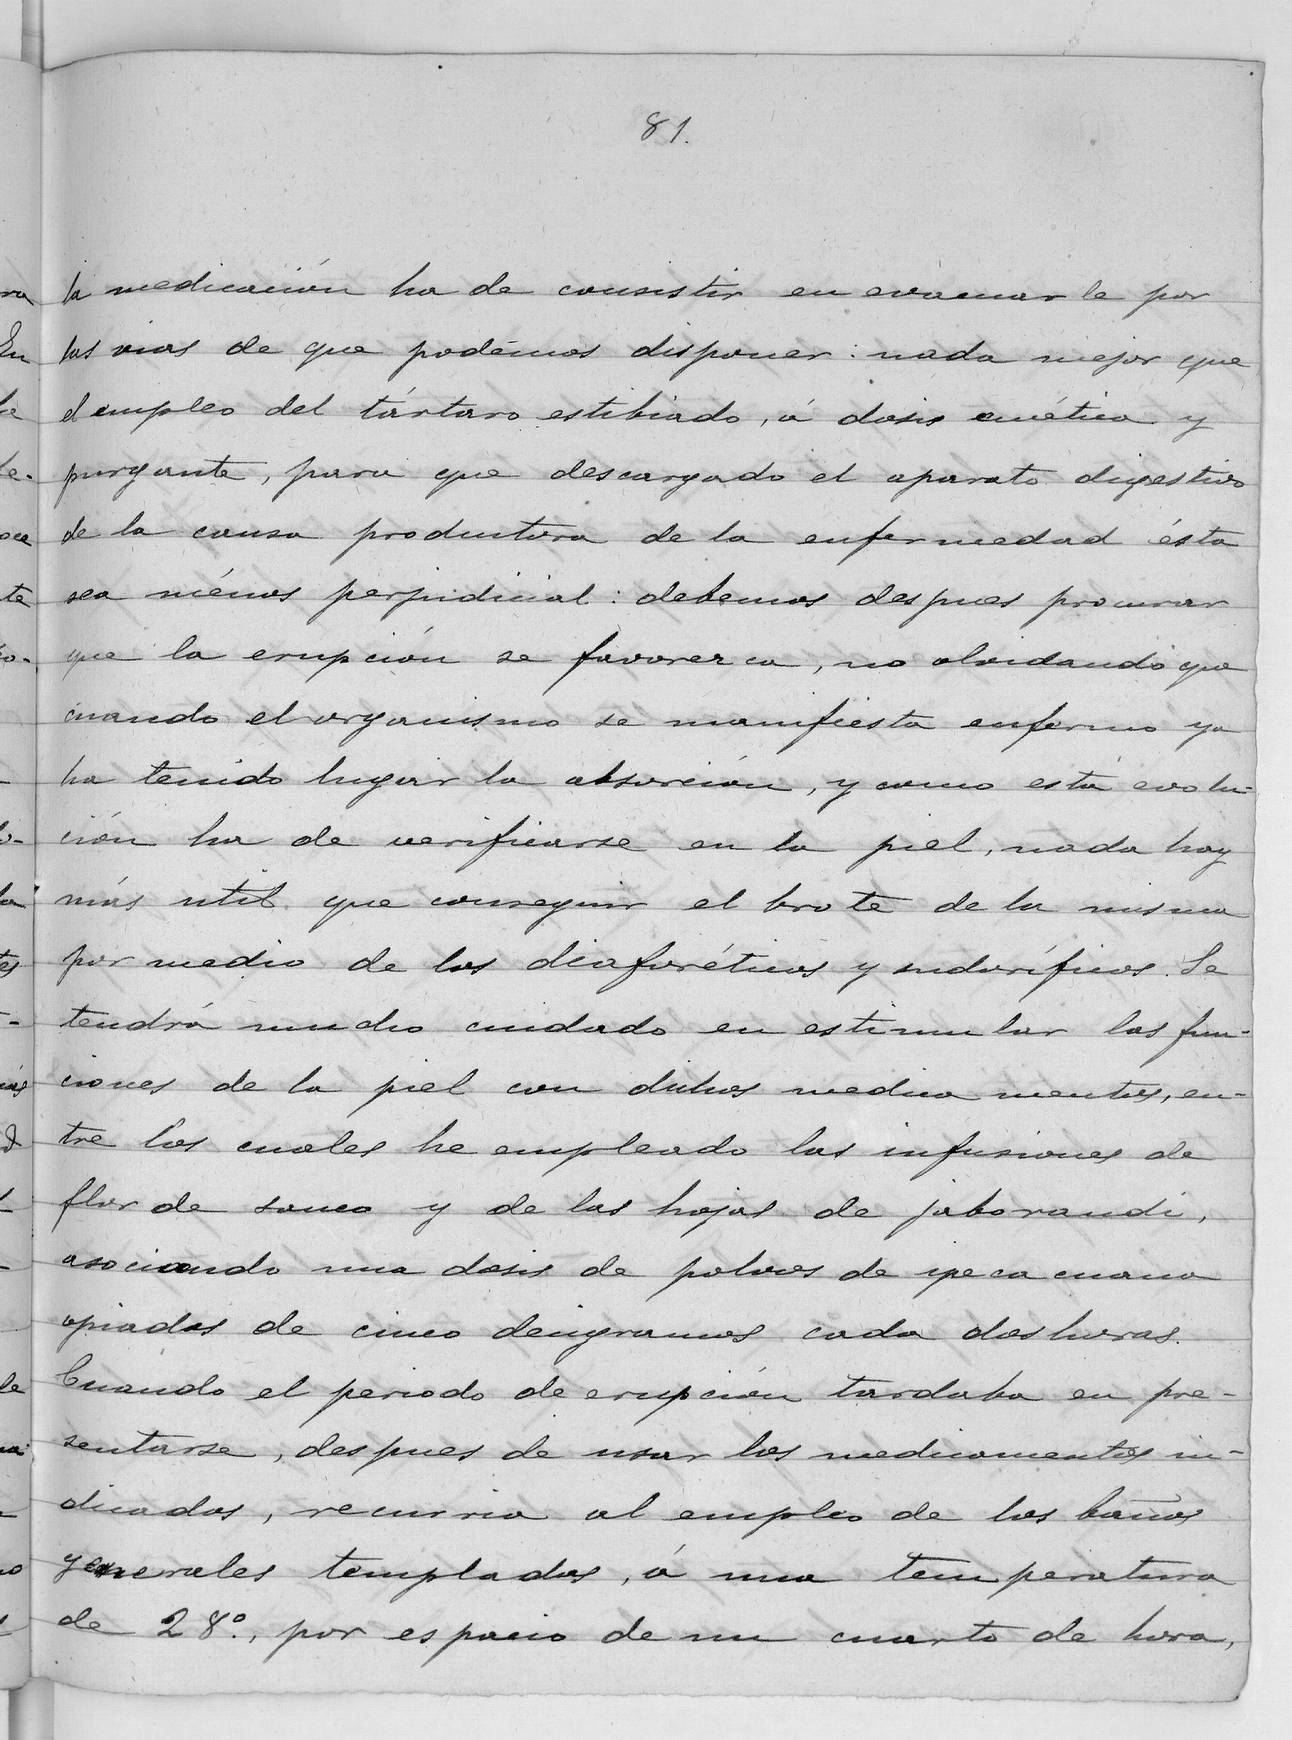 81.
la medicación ha de consistir en evacuarle por
las vias de que podémos disponer: nada mejor que
el empleo del tártaro estibiado, á dosis emética y
purgante, para que descargado el aparato digestivo
de la causa productora de la enfermedad ésta
sea ménos perjudicial: debemos despues procurar
que la erupción se favorezca, no olvidando que
cuando el organismo se manifiesta enfermo ya
ha tenido lugar la absorción, y como esta evolu-
ción ha de verificarse en la piel, nada hay
más util que conseguir el brote de la misma
por medio de los diaforéticos y sudoríficos. Se
tendrá mucho cuidado en estimular las fun-
ciones de la piel con dichos medicamentos, en-
tre los cuales he empleado las infusiones de
flor de sauco y de las hojas de jaborandi,
asociando una dosis de polvos de ipecacuana
opiados de cinco decigramos cada dos horas.
Cuando el periodo de erupción tardaba en pre-
sentarse, despues de usar los medicamentos in-
dicados, recurria al empleo de los baños
generales templados, á una temperatura
de 28º., por espacio de un cuarto de hora,